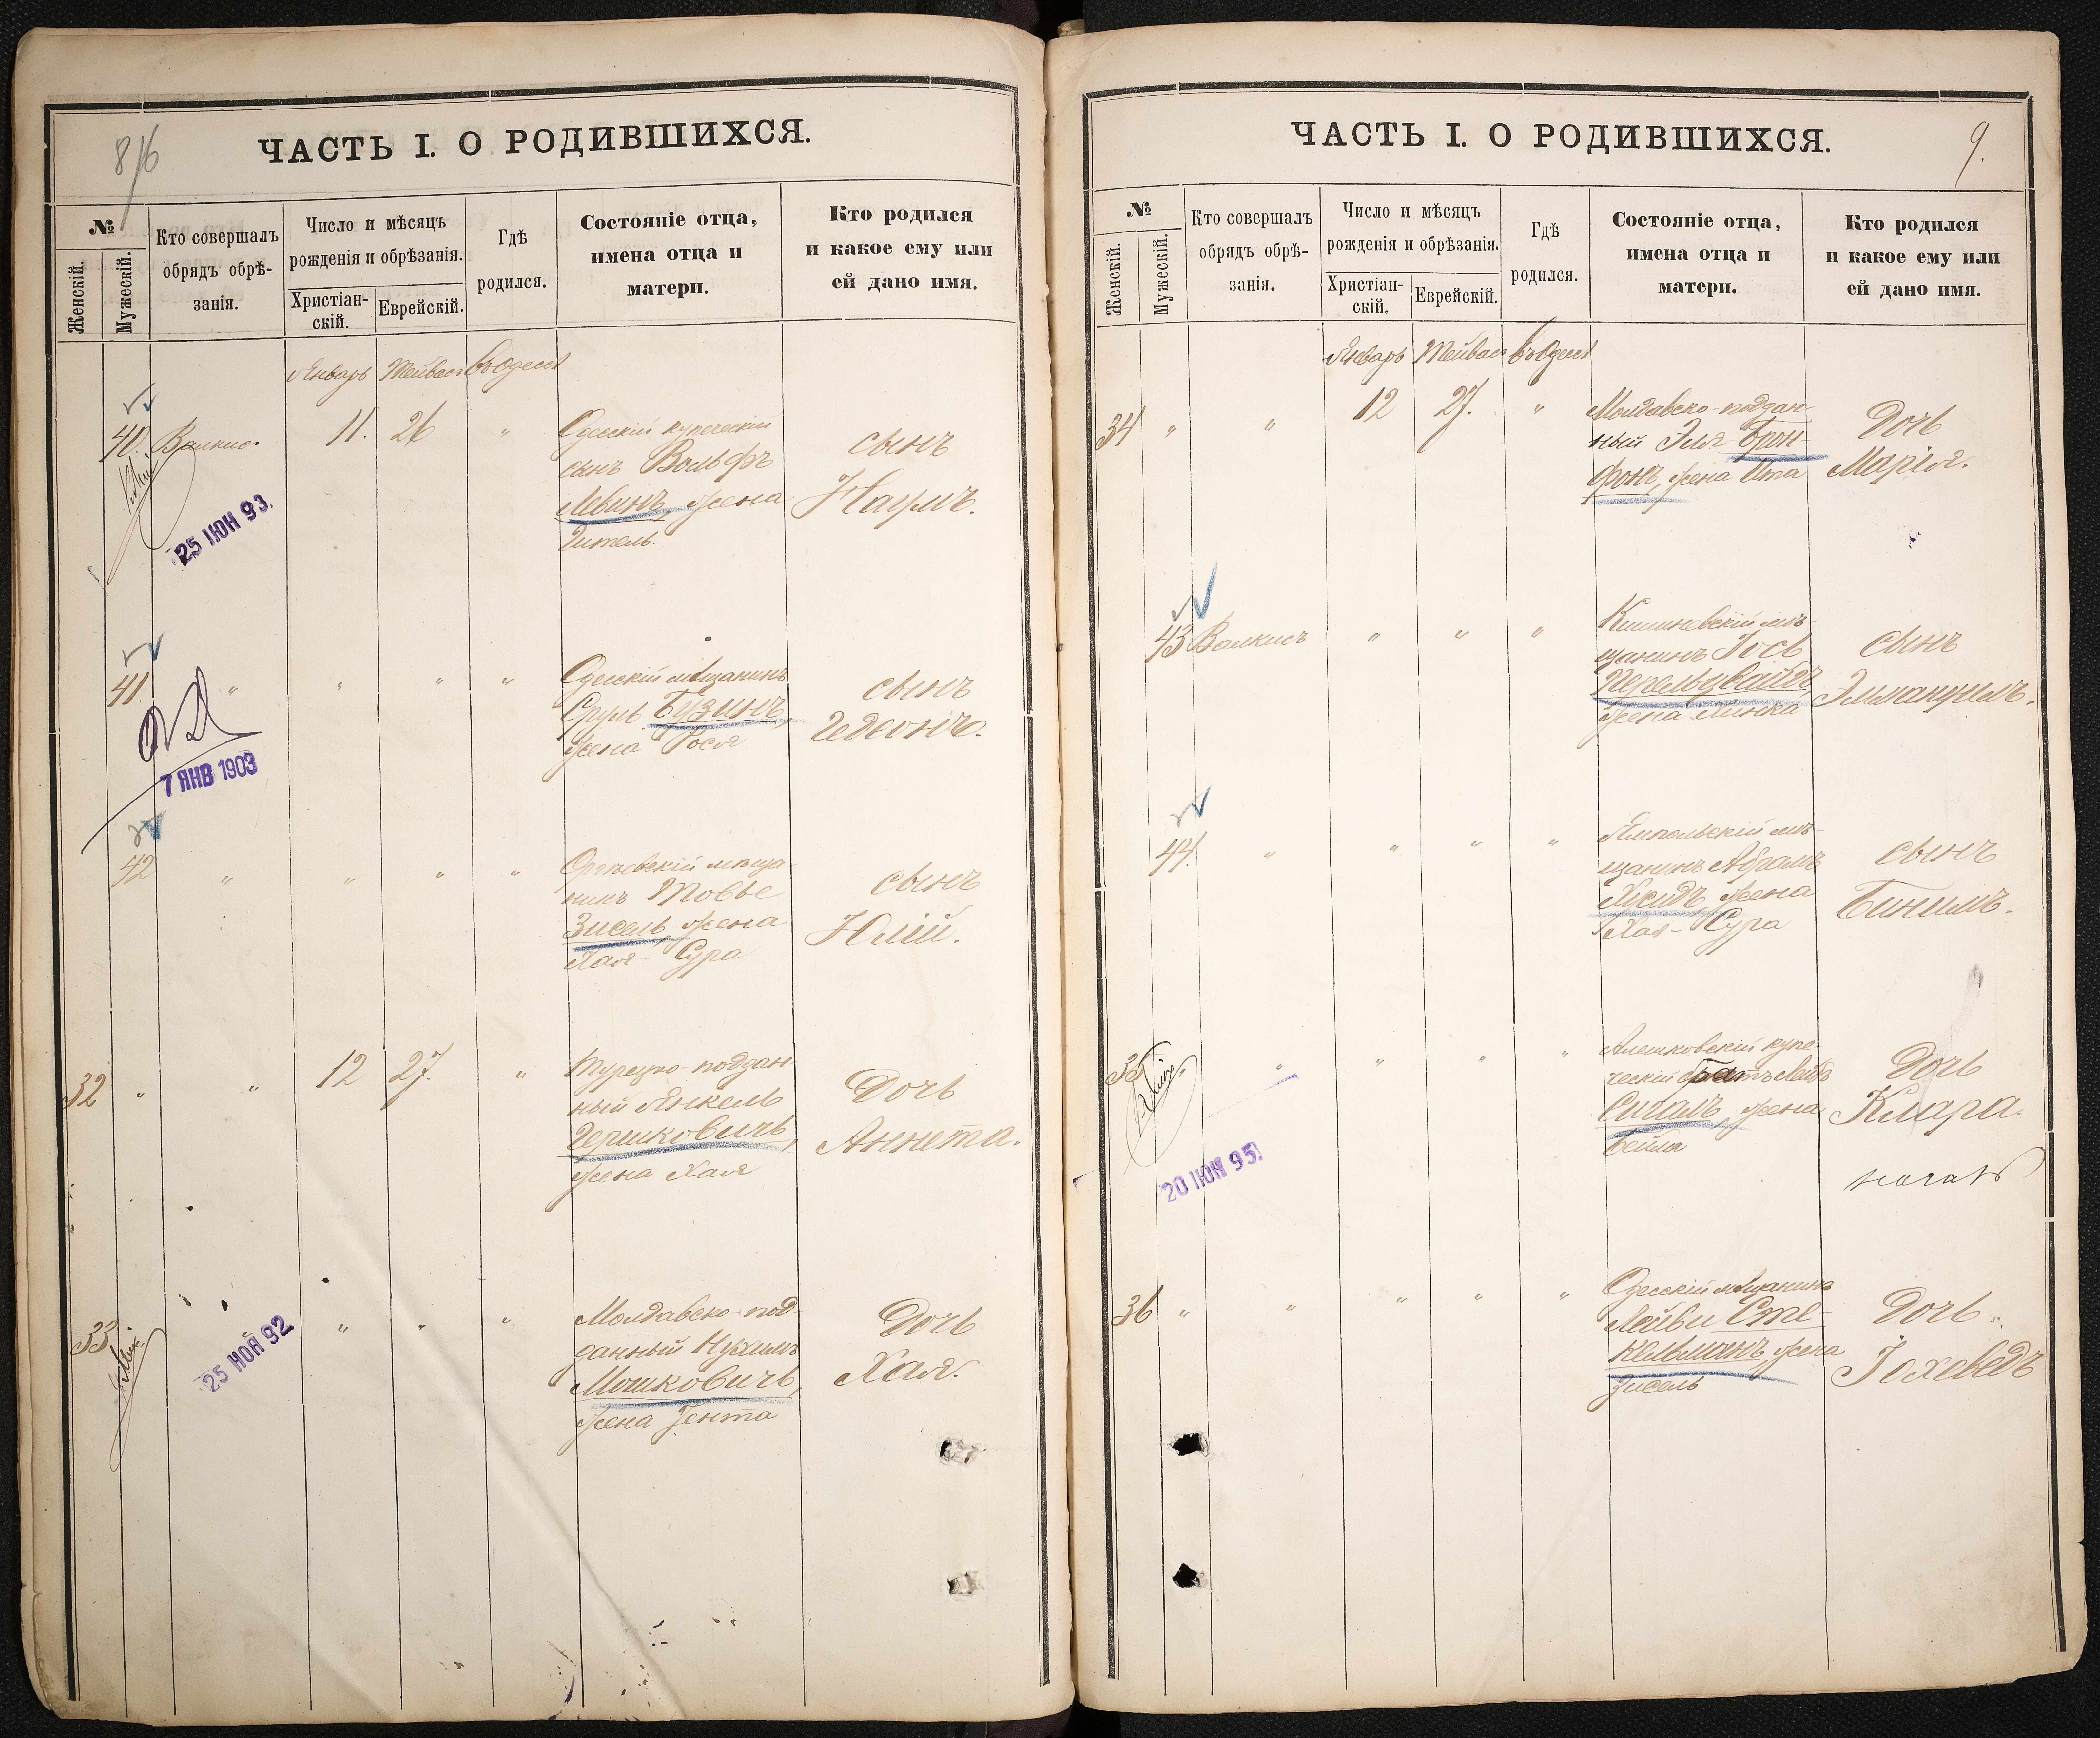 8/16
ЧАСТЬ I. О РОДИВШИХСЯ.
№
Женскій.
Мужескій.
Кто совершалъ
обрядъ обрѣ-
занія.
Число и мѣсяцъ
рожденія и обрѣзанія.
Христіан-
скій.
Еврейскій.
Гдѣ
родился.
Состояніе отца,
имена отца и
матери.
Кто родился
и какое ему или
ей дано имя.
Январь Тейвасъ въ Одессѣ
40. Валкисъ 11. 26 "
Одесскій купеческій
сынъ Вольфъ
Левинъ, жена
Гитель.
сынъ
Наумъ.
25 ІЮН 93.
41. " " " "
Одесскій мѣщанинъ
Сруль Бузинъ,
жена Рося
сынъ
Гедеонъ.
7 ЯНВ 1903
42 " " " "
Оргѣевскій мѣща-
нинъ Товье
Зисель, жена
Хая-Сура
сынъ
Юлій.
32 " " 12 27. "
Турецко-поддан-
ный Янкель
Гершковичъ,
жена Хая
Дочь
Аннета.
33 " " "
Молдавско-под-
данный Нухимъ
Мошковичъ,
жена Јента
Дочь
Хая.
25 НОЯ 92
9.
ЧАСТЬ I. О РОДИВШИХСЯ.
№
Женскій.
Мужескій.
Кто совершалъ
обрядъ обрѣ-
занія.
Число и мѣсяцъ
рожденія и обрѣзанія.
Христіан-
скій.
Еврейскій.
Гдѣ
родился.
Состояніе отца,
имена отца и
матери.
Кто родился
и какое ему или
ей дано имя.
Январь Тейвасъ въ Одессѣ
34 " " 12 27. "
Молдавско-поддан-
ный Эля Брон-
фонъ, жена Ита
Дочь
Марія.
43 Валкисъ " " "
Кишиневскій мѣ-
щанинъ Іось
Перельцвайгъ,
жена Хинка
сынъ
Эммануилъ.
44. " " " "
Ямпольскій мѣ-
щанинъ Абрамъ
Хсидъ, жена
Хая-Сура
сынъ
Бинимъ.
35 " " " "
Алешковскій купе-
ческій братъ Лейбъ
Сигалъ, жена
Бейла
Дочь
Клара.
20 ІЮН 95.
36 " " " " "
Одесскій мѣщанинъ
Лейви Сте-
кельманъ, жена
Зисель
Дочь
Іохеведъ